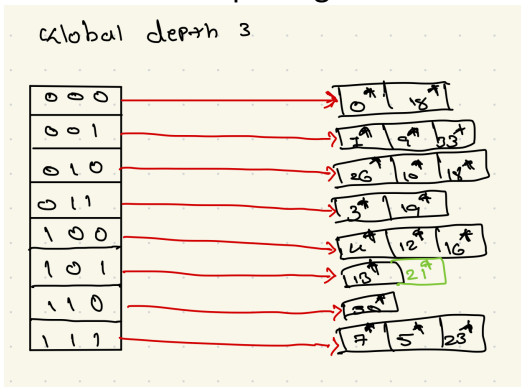 Global depth 3
000 0* 18*
001 1* 9* 33*
010 26* 10* 18*
011 3* 19*
100 4* 12* 16*
101 13* 21*
110
111 7* 5* 23*